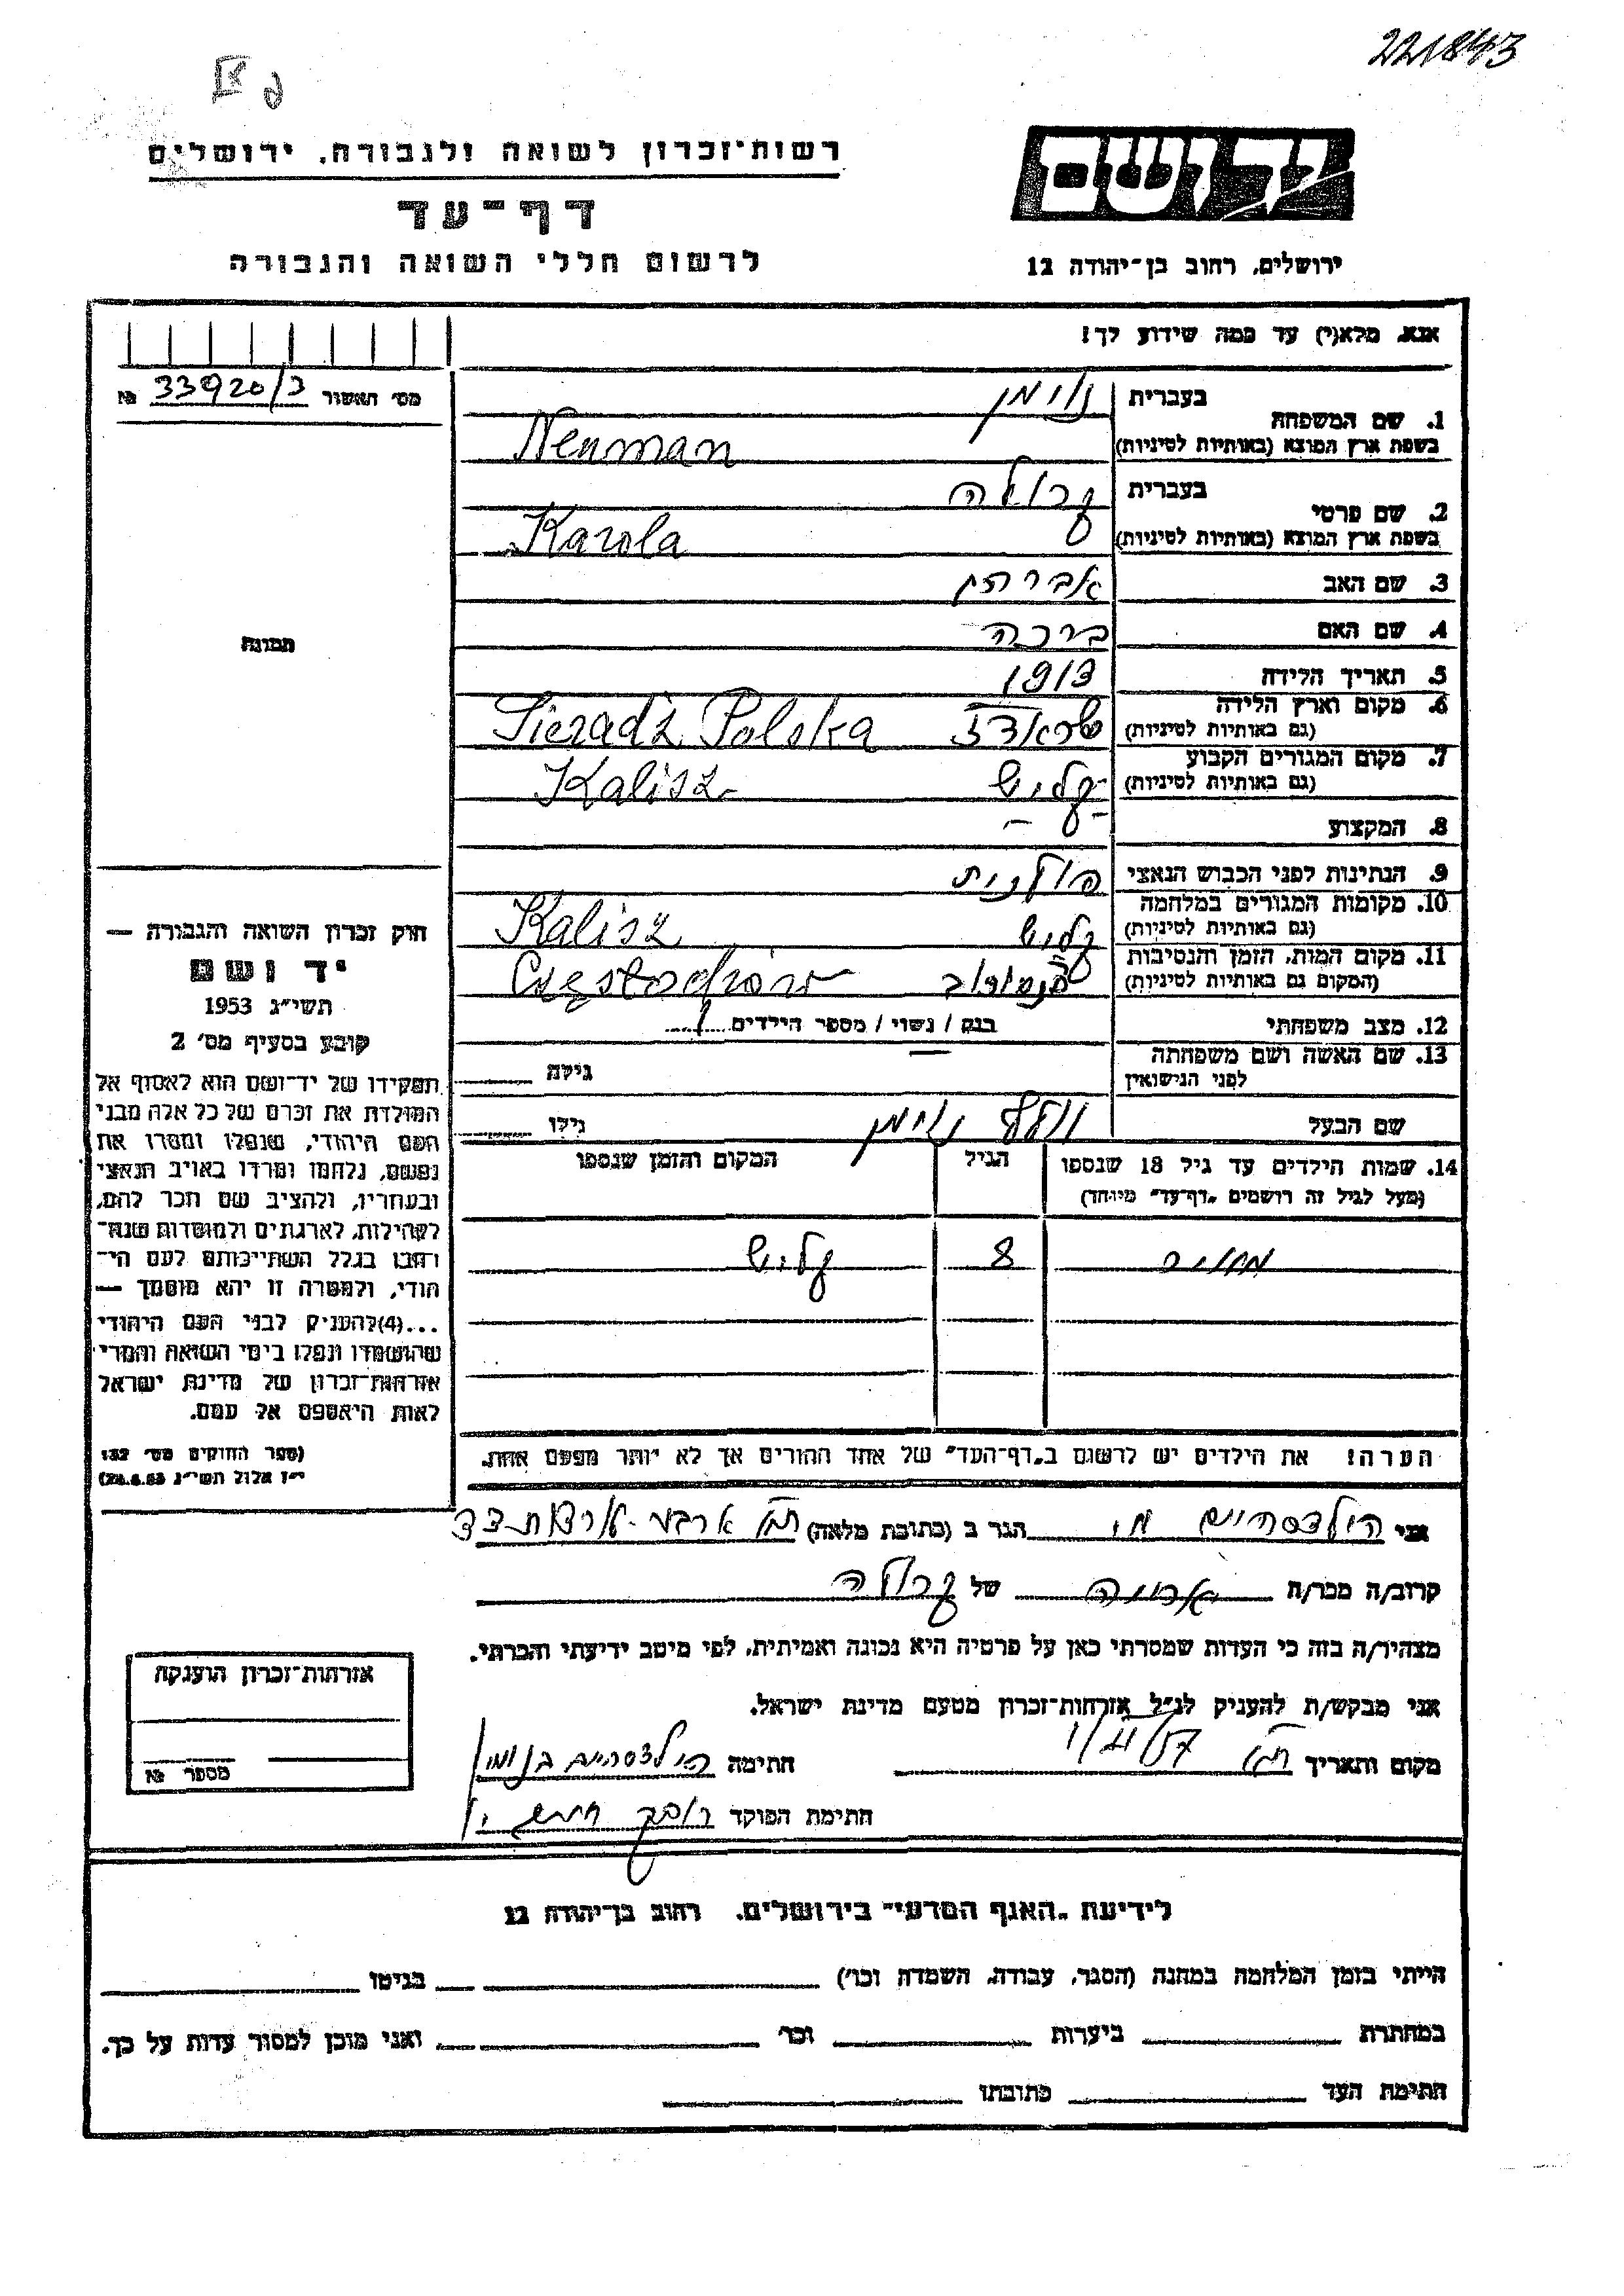 221843
רשות־זכרון לשואה ולגבורה, ירושלים
דף־עד
לרשום חללי השואה והגבורה
יד ושם
ירושלים, רחוב בן־יהודה 12
אנא, מלא(י) עד כמה שידוע לך!
מס' האשור 33920/3 №
1. שם המשפחה
בעברית נוימן
בשפת ארץ המוצא (באותיות לטיניות) Neuman
2. שם פרטי
בעברית קרולה
בשפת ארץ המוצא (באותיות לטיניות) Karola
3. שם האב אברהם
4. שם האם ברכה
5. תאריך הלידה 1913
6. מקום וארץ הלידה
(גם באותיות לטיניות) שראדז Sieradż Polska
7. מקום המגורים הקבוע
(גם באותיות לטיניות) קליש Kalisz
8. המקצוע —
9. הנתינות לפני הכבוש הנאצי פולנית
10. מקומות המגורים במלחמה
(גם באותיות לטיניות) קליש Kalisz
11. מקום המות, הזמן והנסיבות
(המקום גם באותיות לטיניות) Częstochów
12. מצב משפחתי רוק / נשוי / מספר הילדים 1
13. שם האשה ושם משפחתה
לפני הנישואין
גילה
שם הבעל נוימן
גילו
14. שמות הילדים עד גיל 18 שנספו
(מעל לגיל זה רושמים "דף־עד" מיוחד)
הגיל
המקום והזמן שנספו
8 קליש
הערה! את הילדים יש לרשום ב"דף־העד" של אחד ההורים אך לא יותר מפעם אחת.
תמונה
חוק זכרון השואה והגבורה —
יד ושם
תשי"ג 1953
קובע בסעיף מס' 2
תפקידו של יד־ושם הוא לאסוף אל
המולדת את זכרם של כל אלה מבני
העם היהודי, שנפלו ומסרו את
נפשם, נלחמו ומרדו באויב הנאצי
ובעוזריו, ולהציב שם וזכר להם,
לקהילות, לארגונים ולמוסדות שנח־
רבו בגלל השתייכותם לעם הי־
הודי, ולמטרה זו יהא מוסמך —
...(4)להעניק לבני העם היהודי
שהושמדו ונפלו בימי השואה והמרי
אזרחות־זכרון של מדינת ישראל
לאות היאספם אל עמם.
(ספר החוקים מס' 132
י"ז אלול תשי"ג 28.8.53)
אני הגר ב (כתובת מלאה)
קרוב/ה מכר/ה של קרולה
מצהיר/ה בזה כי העדות שמסרתי כאן על פרטיה היא נכונה ואמיתית, לפי מיטב ידיעתי והכרתי.
אני מבקש/ת להעניק לנ"ל אזרחות־זכרון מטעם מדינת ישראל.
מקום ותאריך חתימה
חתימת הפוקד
אזרחות־זכרון הוענקה
מספר №
לידיעת "האגף המדעי" בירושלים, רחוב בן־יהודה 12
הייתי בזמן המלחמה במחנה (הסגר, עבודה, השמדה וכו') בגיטו
במחתרת ביערות וכו' ואני מוכן למסור עדות על כך.
חתימת העד כתובתו